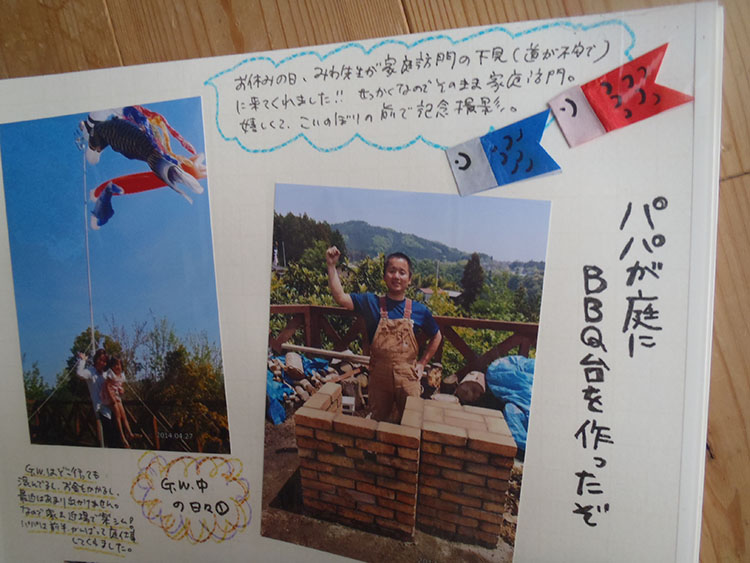 お休みの日、みわ先生が家庭訪問の下見(道が不安で)
に来てくれました!! せっかくなのでそのまま家庭訪問。
嬉しくて、こいのぼりの前で記念撮影。
パパが庭に
BBQ台を作ったぞ
2014.04.27
G.W.中
の日々①
G.W.はどこ行っても
混んでるし、お金もかかるし、
最近はあまり出かけません。
なので家&近場で楽しむ!
パパは前半がんばって庭仕事
してくれました。